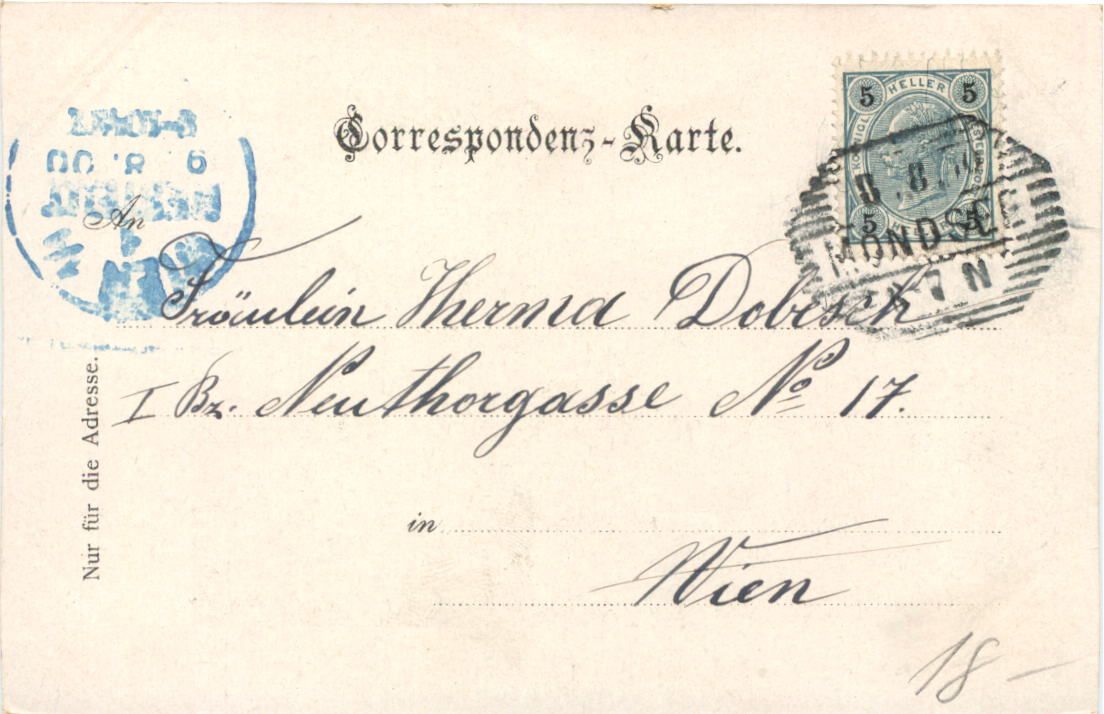 Correspondenz-Karte.
5 HELLER 5
5 5
8.8
MONDSEE
7 N
9 8.00
An
Fräulein Herma Dobesch
I Bz. Neuthorgasse No 17.
in
Wien
Nur für die Adresse.
18-